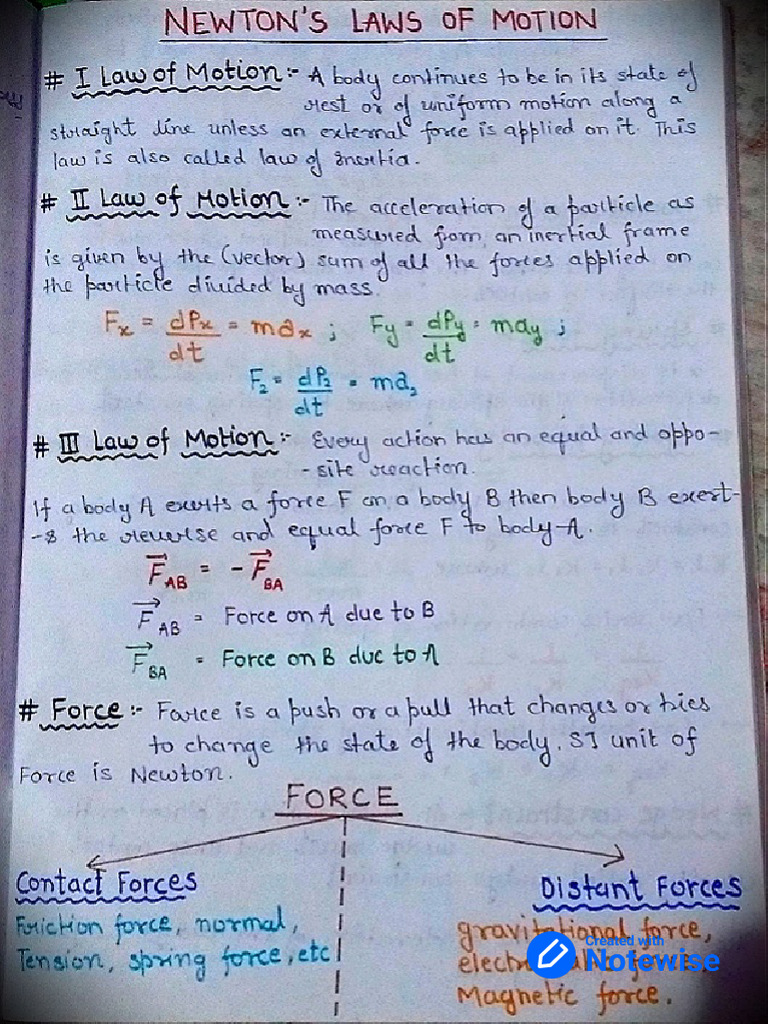 NEWTON'S LAWS OF MOTION
# I Law of Motion :- A body continues to be in its state of
rest or of uniform motion along a
straight line unless an external force is applied on it. This
law is also called law of inertia.
# II Law of Motion :- The acceleration of a particle as
measured from an inertial frame
is given by the (vector) sum of all the forces applied on
the particle divided by mass.
Fx = dPx/dt = max ; Fy = dPy/dt = may ;
Fz = dPz/dt = maz
# III Law of Motion :- Every action has an equal and oppo-
-site reaction.
If a body A exerts a force F on a body B then body B exert-
-s the reverse and equal force F to body A.
F⃗AB = - F⃗BA
F⃗AB = Force on A due to B
F⃗BA = Force on B due to A
# Force :- Force is a push or a pull that changes or tries
to change the state of the body. SI unit of
Force is Newton.
FORCE
Contact Forces
Friction force, normal,
Tension, spring force, etc
Distant Forces
gravitational force,
Magnetic force.
Created with
Notewise